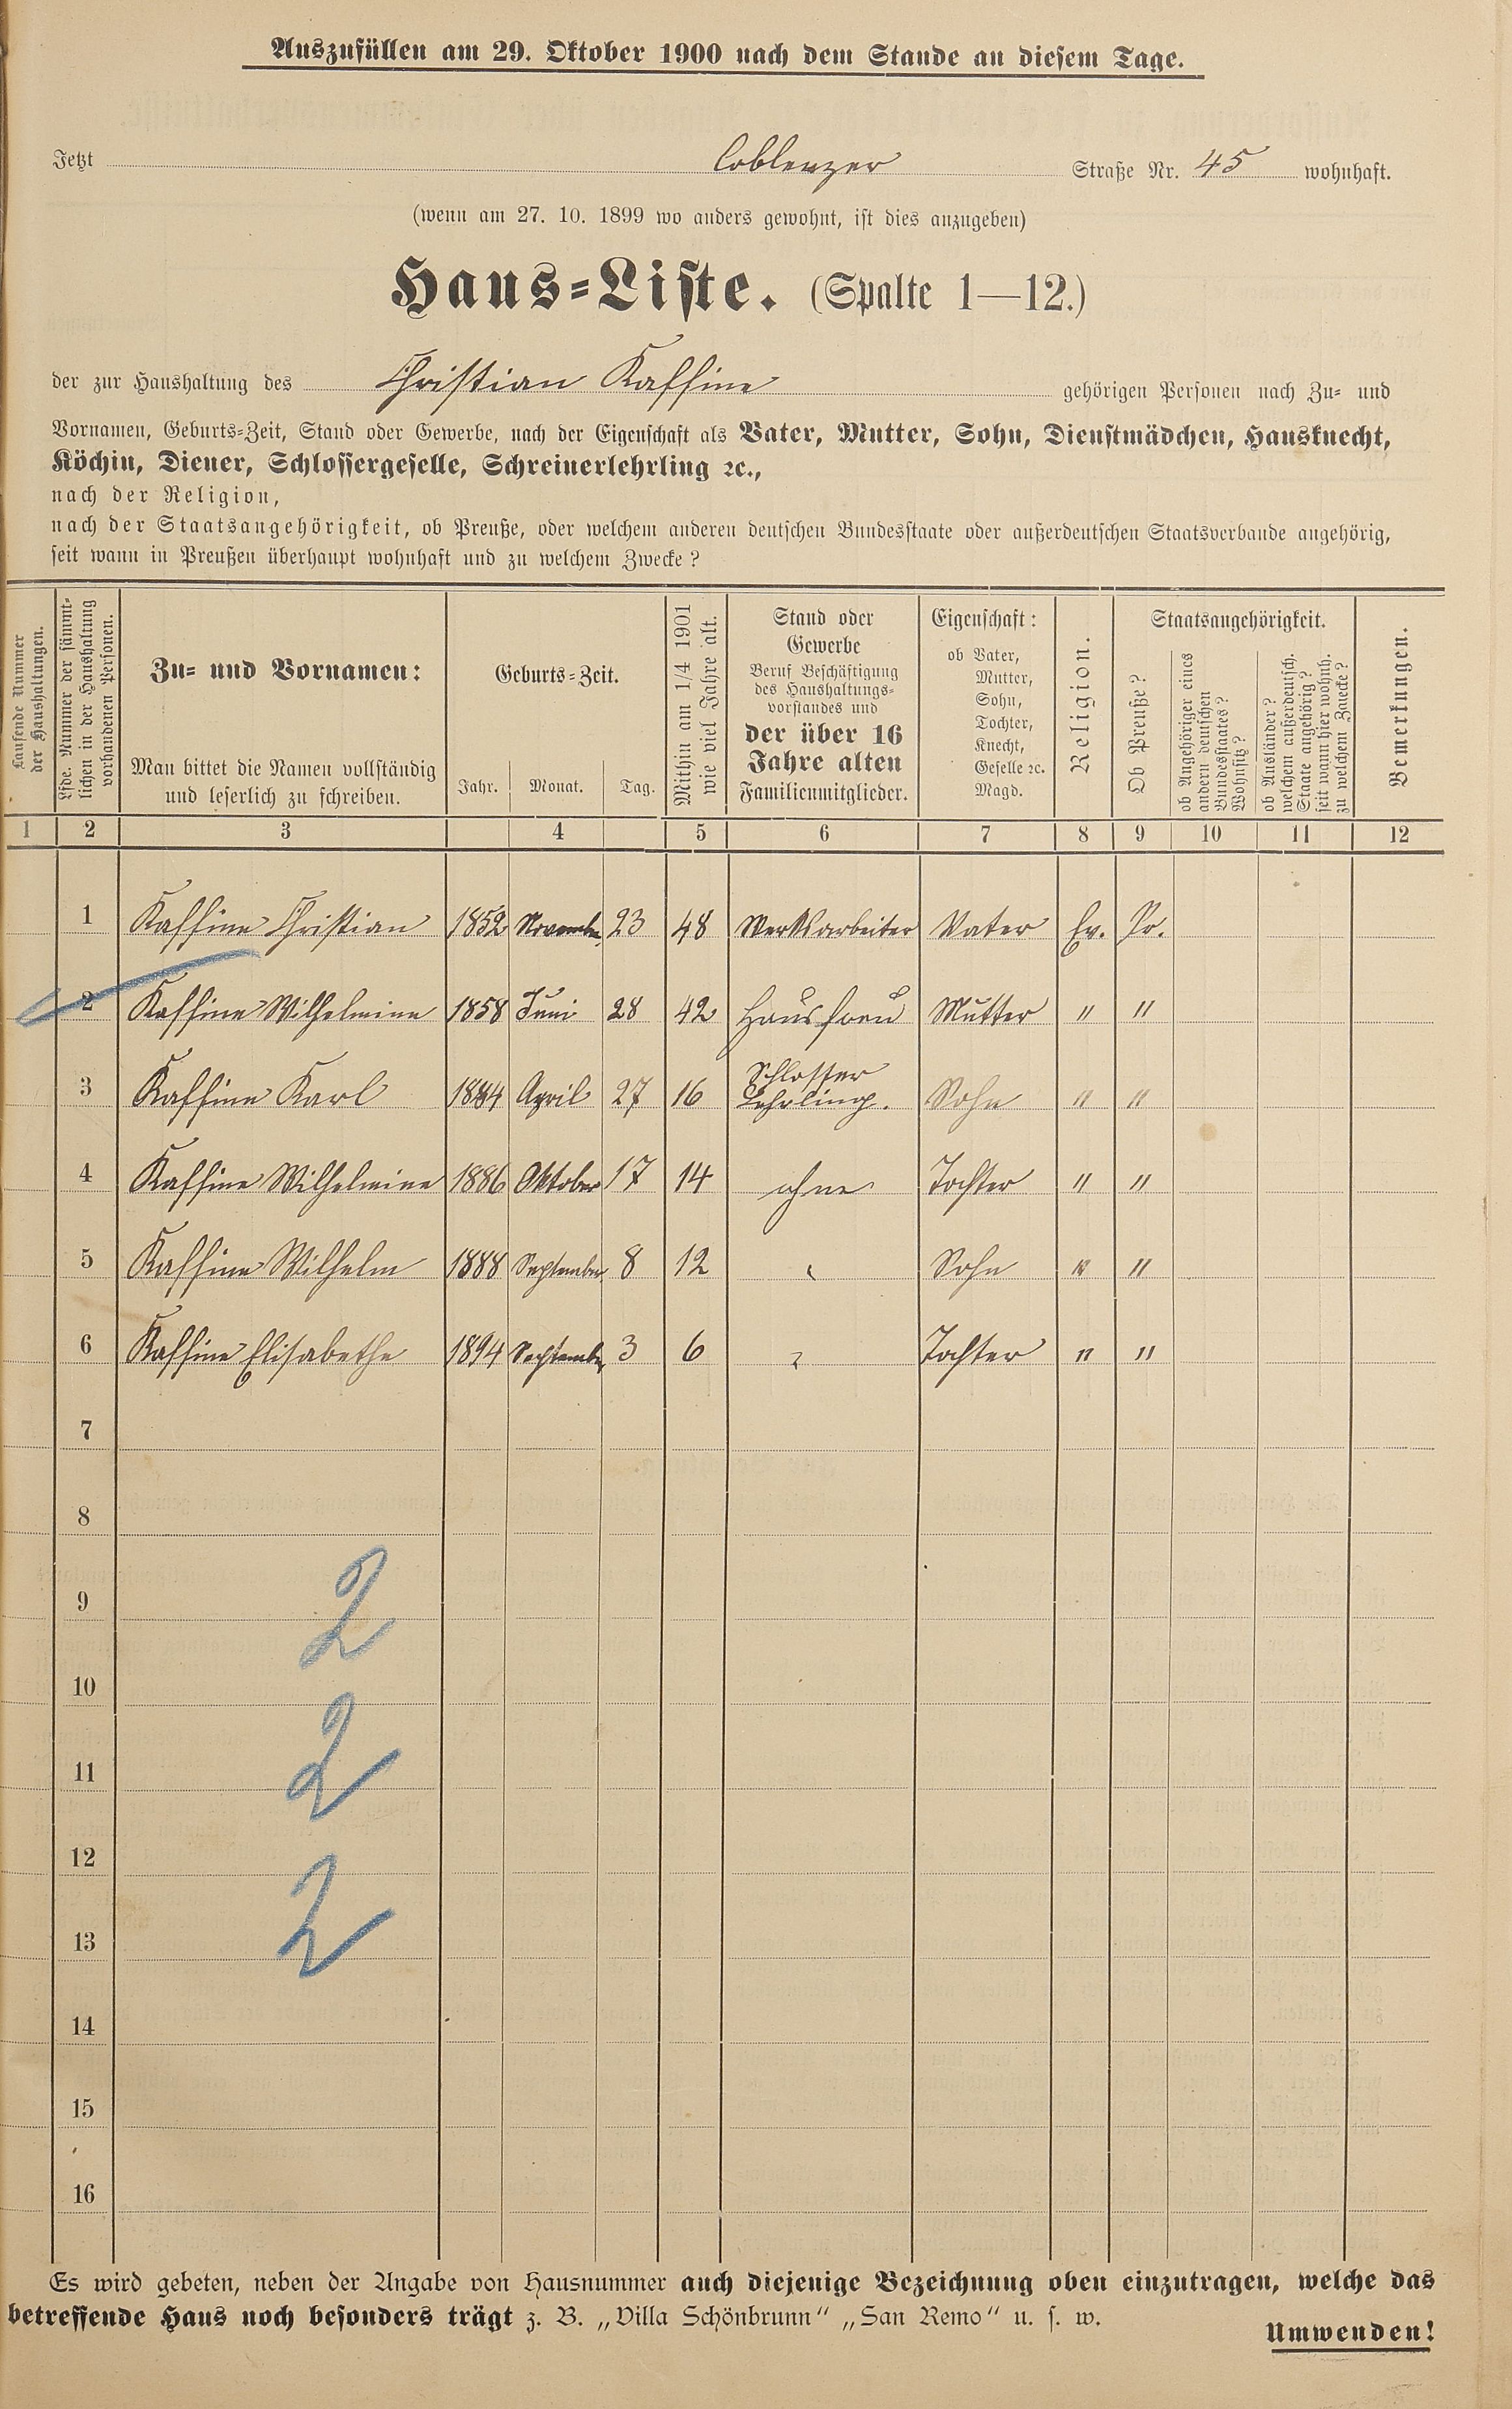 Auszufüllen am 29. Oktober 1900 nach dem Stande an diesem Tage.
Jetzt Coblenzer Straße Nr. 45 wohnhaft.
(wenn am 27. 10. 1899 wo anders gewohnt, ist dies anzugeben)
Haus-Liste. (Spalte 1—12.)
der zur Haushaltung des Christian Kaffine gehörigen Personen nach Zu- und
Vornamen, Geburts-Zeit, Stand oder Gewerbe, nach der Eigenschaft als Vater, Mutter, Sohn, Dienstmädchen, Hausknecht,
Köchin, Diener, Schlossergeselle, Schreinerlehrling ꝛc.,
nach der Religion,
nach der Staatsangehörigkeit, ob Preuße, oder welchem anderen deutschen Bundesstaate oder außerdeutschen Staatsverbande angehörig,
seit wann in Preußen überhaupt wohnhaft und zu welchem Zwecke?
Laufende Nummer
der Haushaltungen.
Lfde. Nummer der sämmt-
lichen in der Haushaltung
vorhandenen Personen.
Zu- und Vornamen:
Man bittet die Namen vollständig
und leserlich zu schreiben.
Geburts-Zeit.
Jahr. Monat. Tag.
Mithin am 1/4 1901
wie viel Jahre alt.
Stand oder
Gewerbe
Beruf Beschäftigung
des Haushaltungs-
vorstandes und
der über 16
Jahre alten
Familienmitglieder.
Eigenschaft:
ob Vater,
Mutter,
Sohn,
Tochter,
Knecht,
Geselle ꝛc.
Magd.
Religion.
Staatsangehörigkeit.
Ob Preuße?
ob Angehöriger eines
andern deutschen
Bundesstaates?
Wohnsitz?
ob Ausländer?
welchem außerdeutsch.
Staate angehörig?
seit wann hier wohnh.
zu welchem Zwecke?
Bemerkungen.
1 2 3 4 5 6 7 8 9 10 11 12
1 Kaffine Christian 1852 November 23 48 Werksarbeiter Vater Ev. Pr.
2 Kaffine Wilhelmine 1858 Juni 28 42 Hausfrau Mutter " "
3 Kaffine Karl 1884 April 27 16 Schlosser Lehrling. Sohn " "
4 Kaffine Wilhelmine 1886 Oktober 17 14 ohne Tochter " "
5 Kaffine Wilhelm 1888 September 8 12 Sohn " "
6 Kaffine Elisabethe 1894 September 3 6 Tochter " "
7
8
9
2
10
11
2
12
13
2
14
15
16
Es wird gebeten, neben der Angabe von Hausnummer auch diejenige Bezeichnung oben einzutragen, welche das
betreffende Haus noch besonders trägt z. B. „Villa Schönbrunn" „San Remo" u. s. w.
Umwenden!